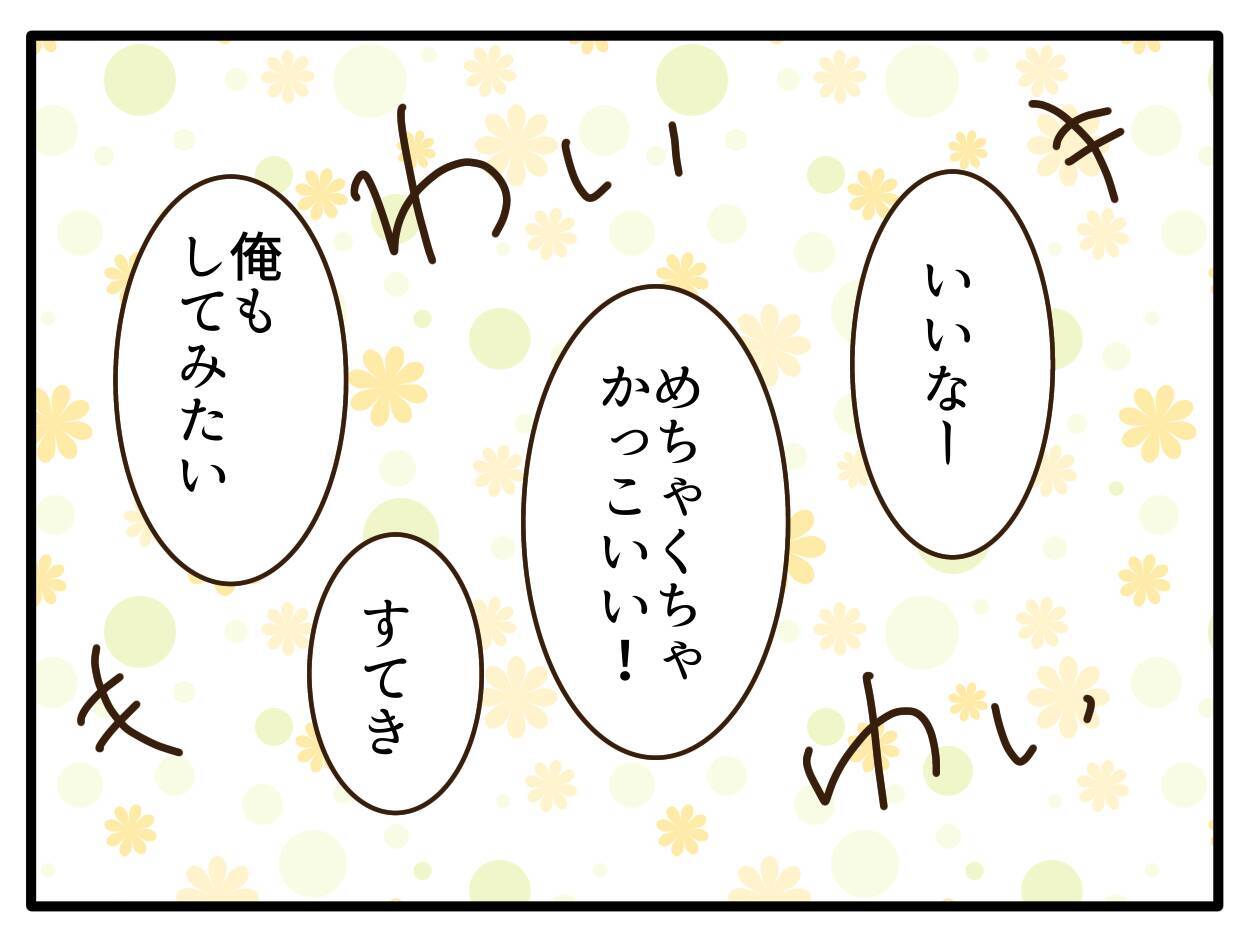 いいなー
めちゃくちゃ
かっこいい！
すてき
俺も
してみたい
わい
わい